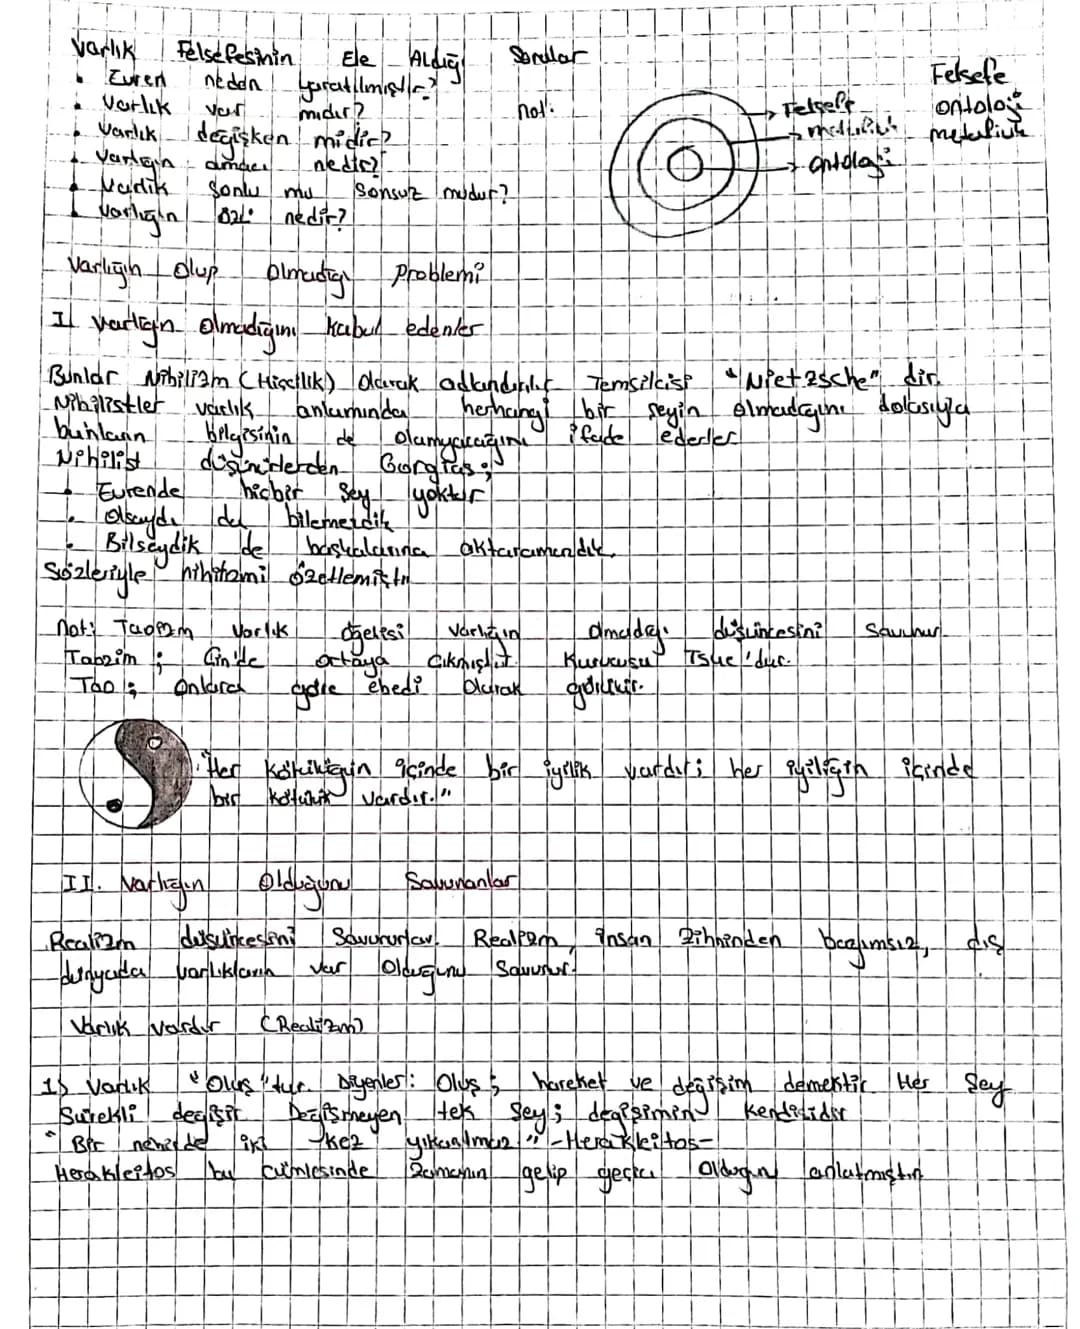 Varlık Felsefesinin Ele Aldığı Sorular
• Evren neden yaratılmıştır?
• Varlık var mıdır?
• Varlık değişken midir?
• Varlığın amacı nedir?
• Varlık Sonlu mu Sonsuz mudur?
• Varlığın özü nedir?
not:
Felsefe
metafizik
ontoloji
Felsefe
ontoloji
metafizik
Varlığın Olup Olmadığı Problemi
I. Varlığın Olmadığını Kabul edenler
Bunlar Nihilizm (Hiççilik) Olarak adlandırılır Temsilcisi "Nietzsche" dir.
Nihilistler varlık anlamından herhangi bir şeyin olmadığını dolasıyla
bunların bilgisinin de olamıyacağını ifade ederler
Nihilist düşünürlerden Gorgias;
• Evrende hiçbir Şey yoktur
• Olsaydı da bilemezdik
• Bilseydik de başkalarına aktaramazdık.
Sözleriyle nihilizmi özetlemiştir
not: Taoizm Varlık öğretisi Varlığın olmadığı düşüncesini Savunur.
Taoizm; Çin'de ortaya çıkmıştır. Kurucusu Tsue'dur.
Tao; Onlara göre ebedi Olarak görülür.
"Her kötülüğün içinde bir iyilik vardır; her iyiliğin içinde
bir kötülük vardır."
II. Varlığın Olduğunu Savunanlar
Realizm düşüncesini Savunurlar. Realizm, insan Zihninden bağımsız, dış
dünyada varlıkların var Olduğunu Savunur.
Varlık vardır (Realizm)
1) Varlık "Oluş"tur. Diyenler: Oluş; hareket ve değişim demektir Her Şey
Sürekli değişir Değişmeyen tek Şey; değişimin kendisidir
"Bir nehirde iki kez yıkanılmaz" -Herakleitos-
Herakleitos bu cümlesinde Zamanın gelip geçici Olduğun anlatmıştır